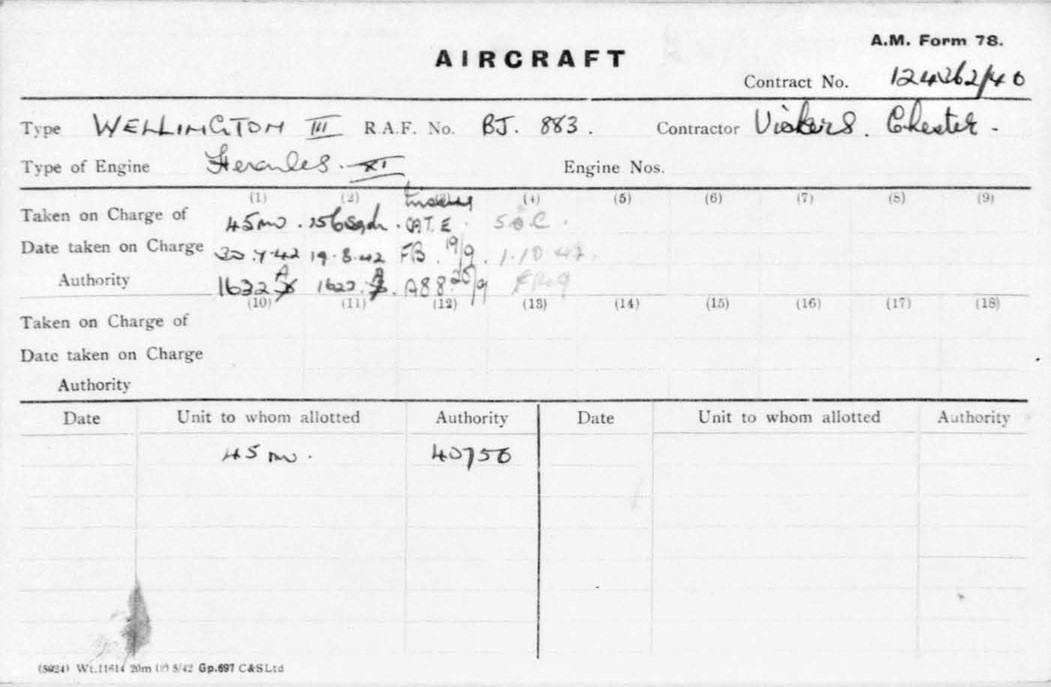 A.M. Form 78.
AIRCRAFT
Contract No. 124262/40
Type WELLINGTON III R.A.F. No. BJ. 883. Contractor Vickers. Chester.
Type of Engine Hercules. XI Engine Nos.
(1) (2) (3) (4) (5) (6) (7) (8) (9)
Taken on Charge of 45 MU. 156 Sqdn. CAT. E S.O.C.
Date taken on Charge 30.7.42 19.8.42 FB. 19/9. 1.10.42.
Authority 1632 1627 A88 25/9
(10) (11) (12) (13) (14) (15) (16) (17) (18)
Taken on Charge of
Date taken on Charge
Authority
Date Unit to whom allotted Authority Date Unit to whom allotted Authority
45 MU. 40756
(5024) Wt.11614 20m 5/42 Gp.697 C&S Ltd